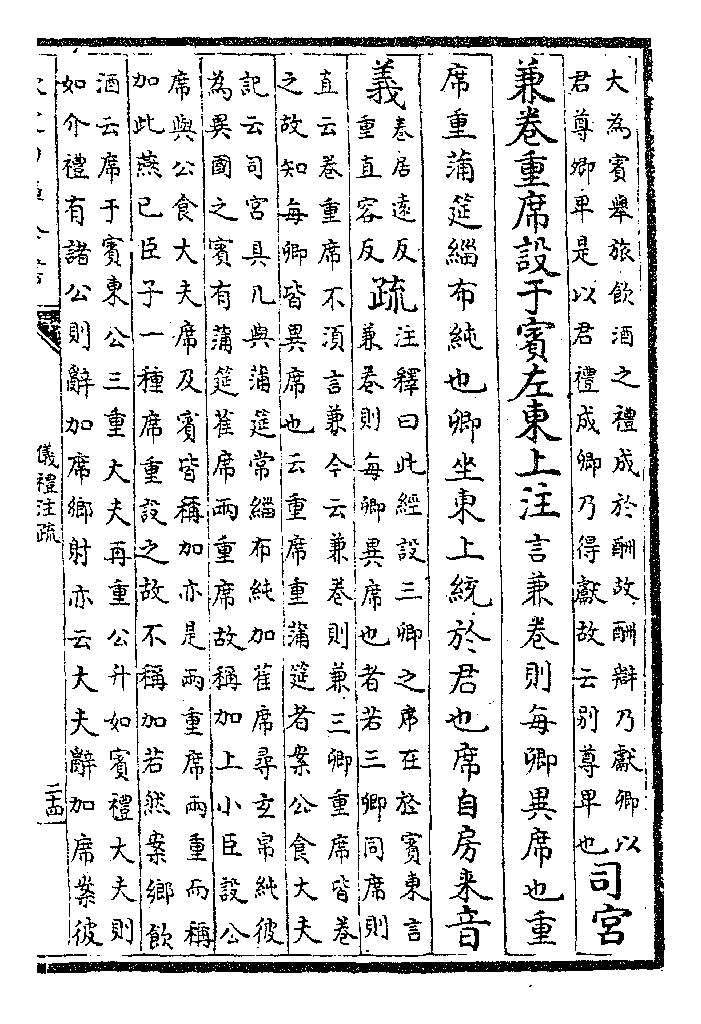 大為賓舉旅飲酒之禮成於酬故酬辯乃獻卿以
君尊卿卑是以君禮成卿乃得獻故云别尊卑也
司宮
兼卷重席設于賓左東上注言兼卷則每卿異席也重
席重蒲筵緇布純也卿坐東上統於君也席自房来音
義卷居遠反
重直容反
疏注釋曰此經設三卿之席在於賓東言
兼卷則每卿異席也者若三卿同席則
直云卷重席不湏言兼今云兼卷則兼三卿重席皆卷
之故知每卿皆異席也云重席重蒲筵者案公食大夫
記云司宮具几與蒲筵常緇布純加萑席尋玄帛純彼
為異國之賓有蒲筵萑席兩重席故稱加上小臣設公
席與公食大夫席及賓皆稱加亦是兩重席兩重而稱
加此燕已臣子一種席重設之故不稱加若然案鄉飲
酒云席于賓東公三重大夫再重公升如賓禮大夫則
如介禮有諸公則辭加席鄉射亦云大夫辭加席案彼
儀禮注疏
二十四